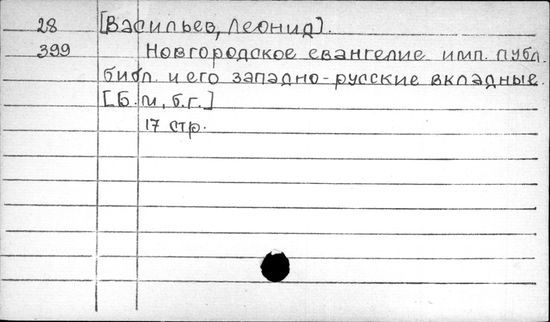 28 [Васильев, Леонид].
399 Новгородское евангелие имп. публ.
библ. и его западно-русские вкладные.
[Б. м, б.г.]
17 стр.